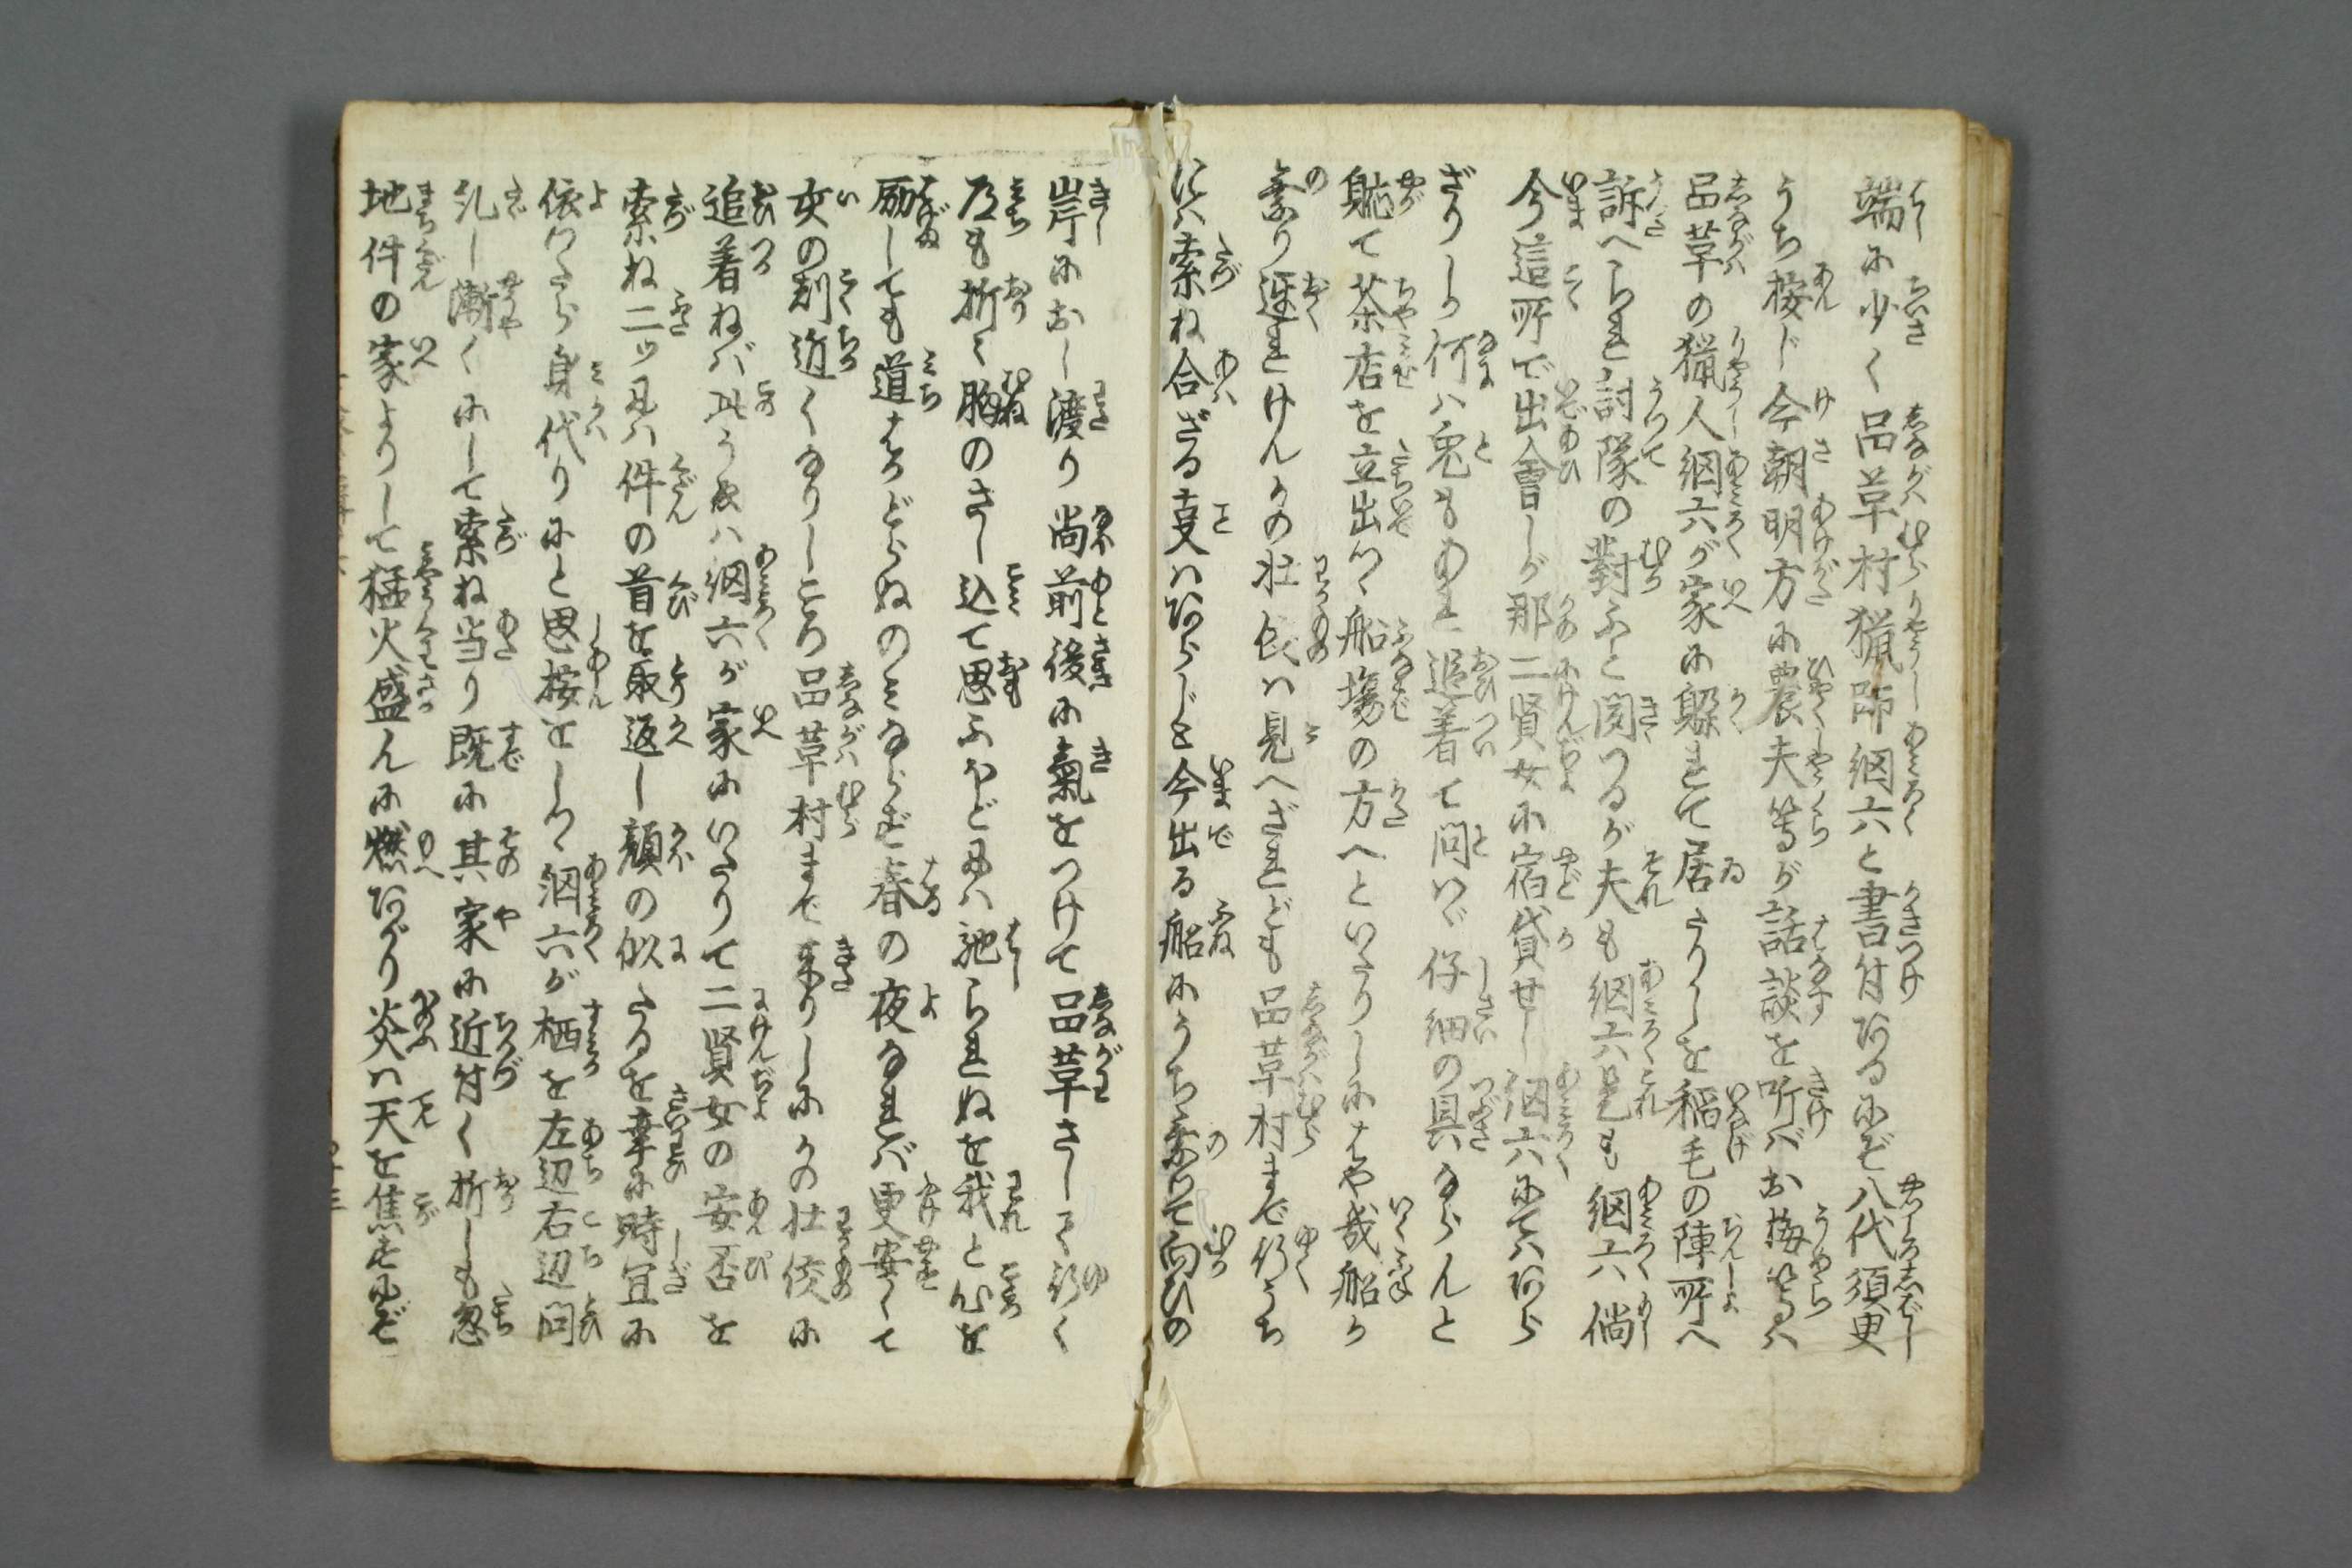 端に少く品革村猟師網六と書付あるにぞ八代須更
うち按じ今朝明方に農夫等が話談を听バお梅等ハ
品革の猟人網六が家に躱れて居たりしを稲毛の陣所へ
訴へられ討隊の對ふと聞つるが夫も網六是も網六倘
今這所で出會しが那二賢女に宿貸せし網六にてハあら
ざりしか何ハ兎もあれ追着て問ハゞ仔細の具ならんと
躮て茶店を立出つゝ船場の方へといたりしにはや哉船か
乗り遅れけんかの壮佼ハ見へざれども品革村まで行うち
にハ索ね合ざる事ハあらじと今出る船にうち乗りて向ひの
岸におし渡り尚前後に氣をつけて品革さして行く
尽も折々胸のさし込て思ふほどにハ馳られぬを我と心を
励しても道はかどらぬのミならず春の夜なれバ更安くて
女の刻近くなりしころ品革村まで来りしにかの壮佼に
追着ねバ此うヘハ網六が家にいたりて二賢女の安否を
索ね二ツにハ件の首を取返し顔の似たるを幸に時宜に
依つたら身代りにと思按をしつゝ網六が栖を左辺右辺問
糺し漸くにして索ね当り既に其家に近付く折しも忽
地件の家よりして猛火盛んに燃あがり炎ハ天を焦すにぞ